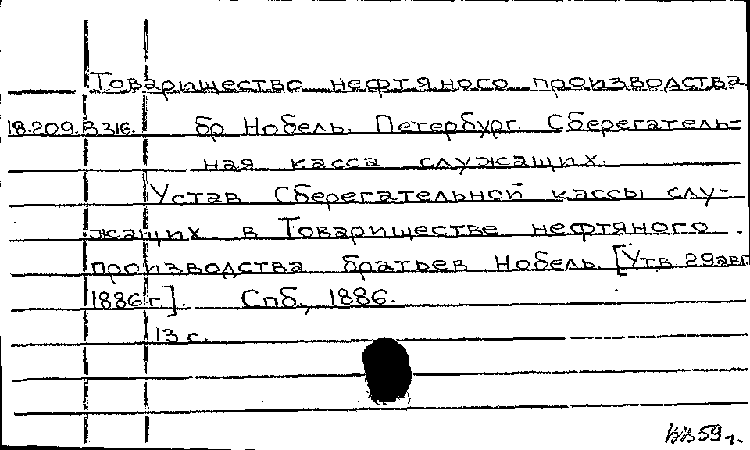 Товарищество нефтяного производства
18.209.В316. бр Нобель. Петербург. Сберегатель=
ная касса служащих.
Устав Сберегательной кассы слу-
жащих в Товариществе нефтяного
производства братьев Нобель. [Утв 29авг
1886г]. Спб., 1886.
13 с.